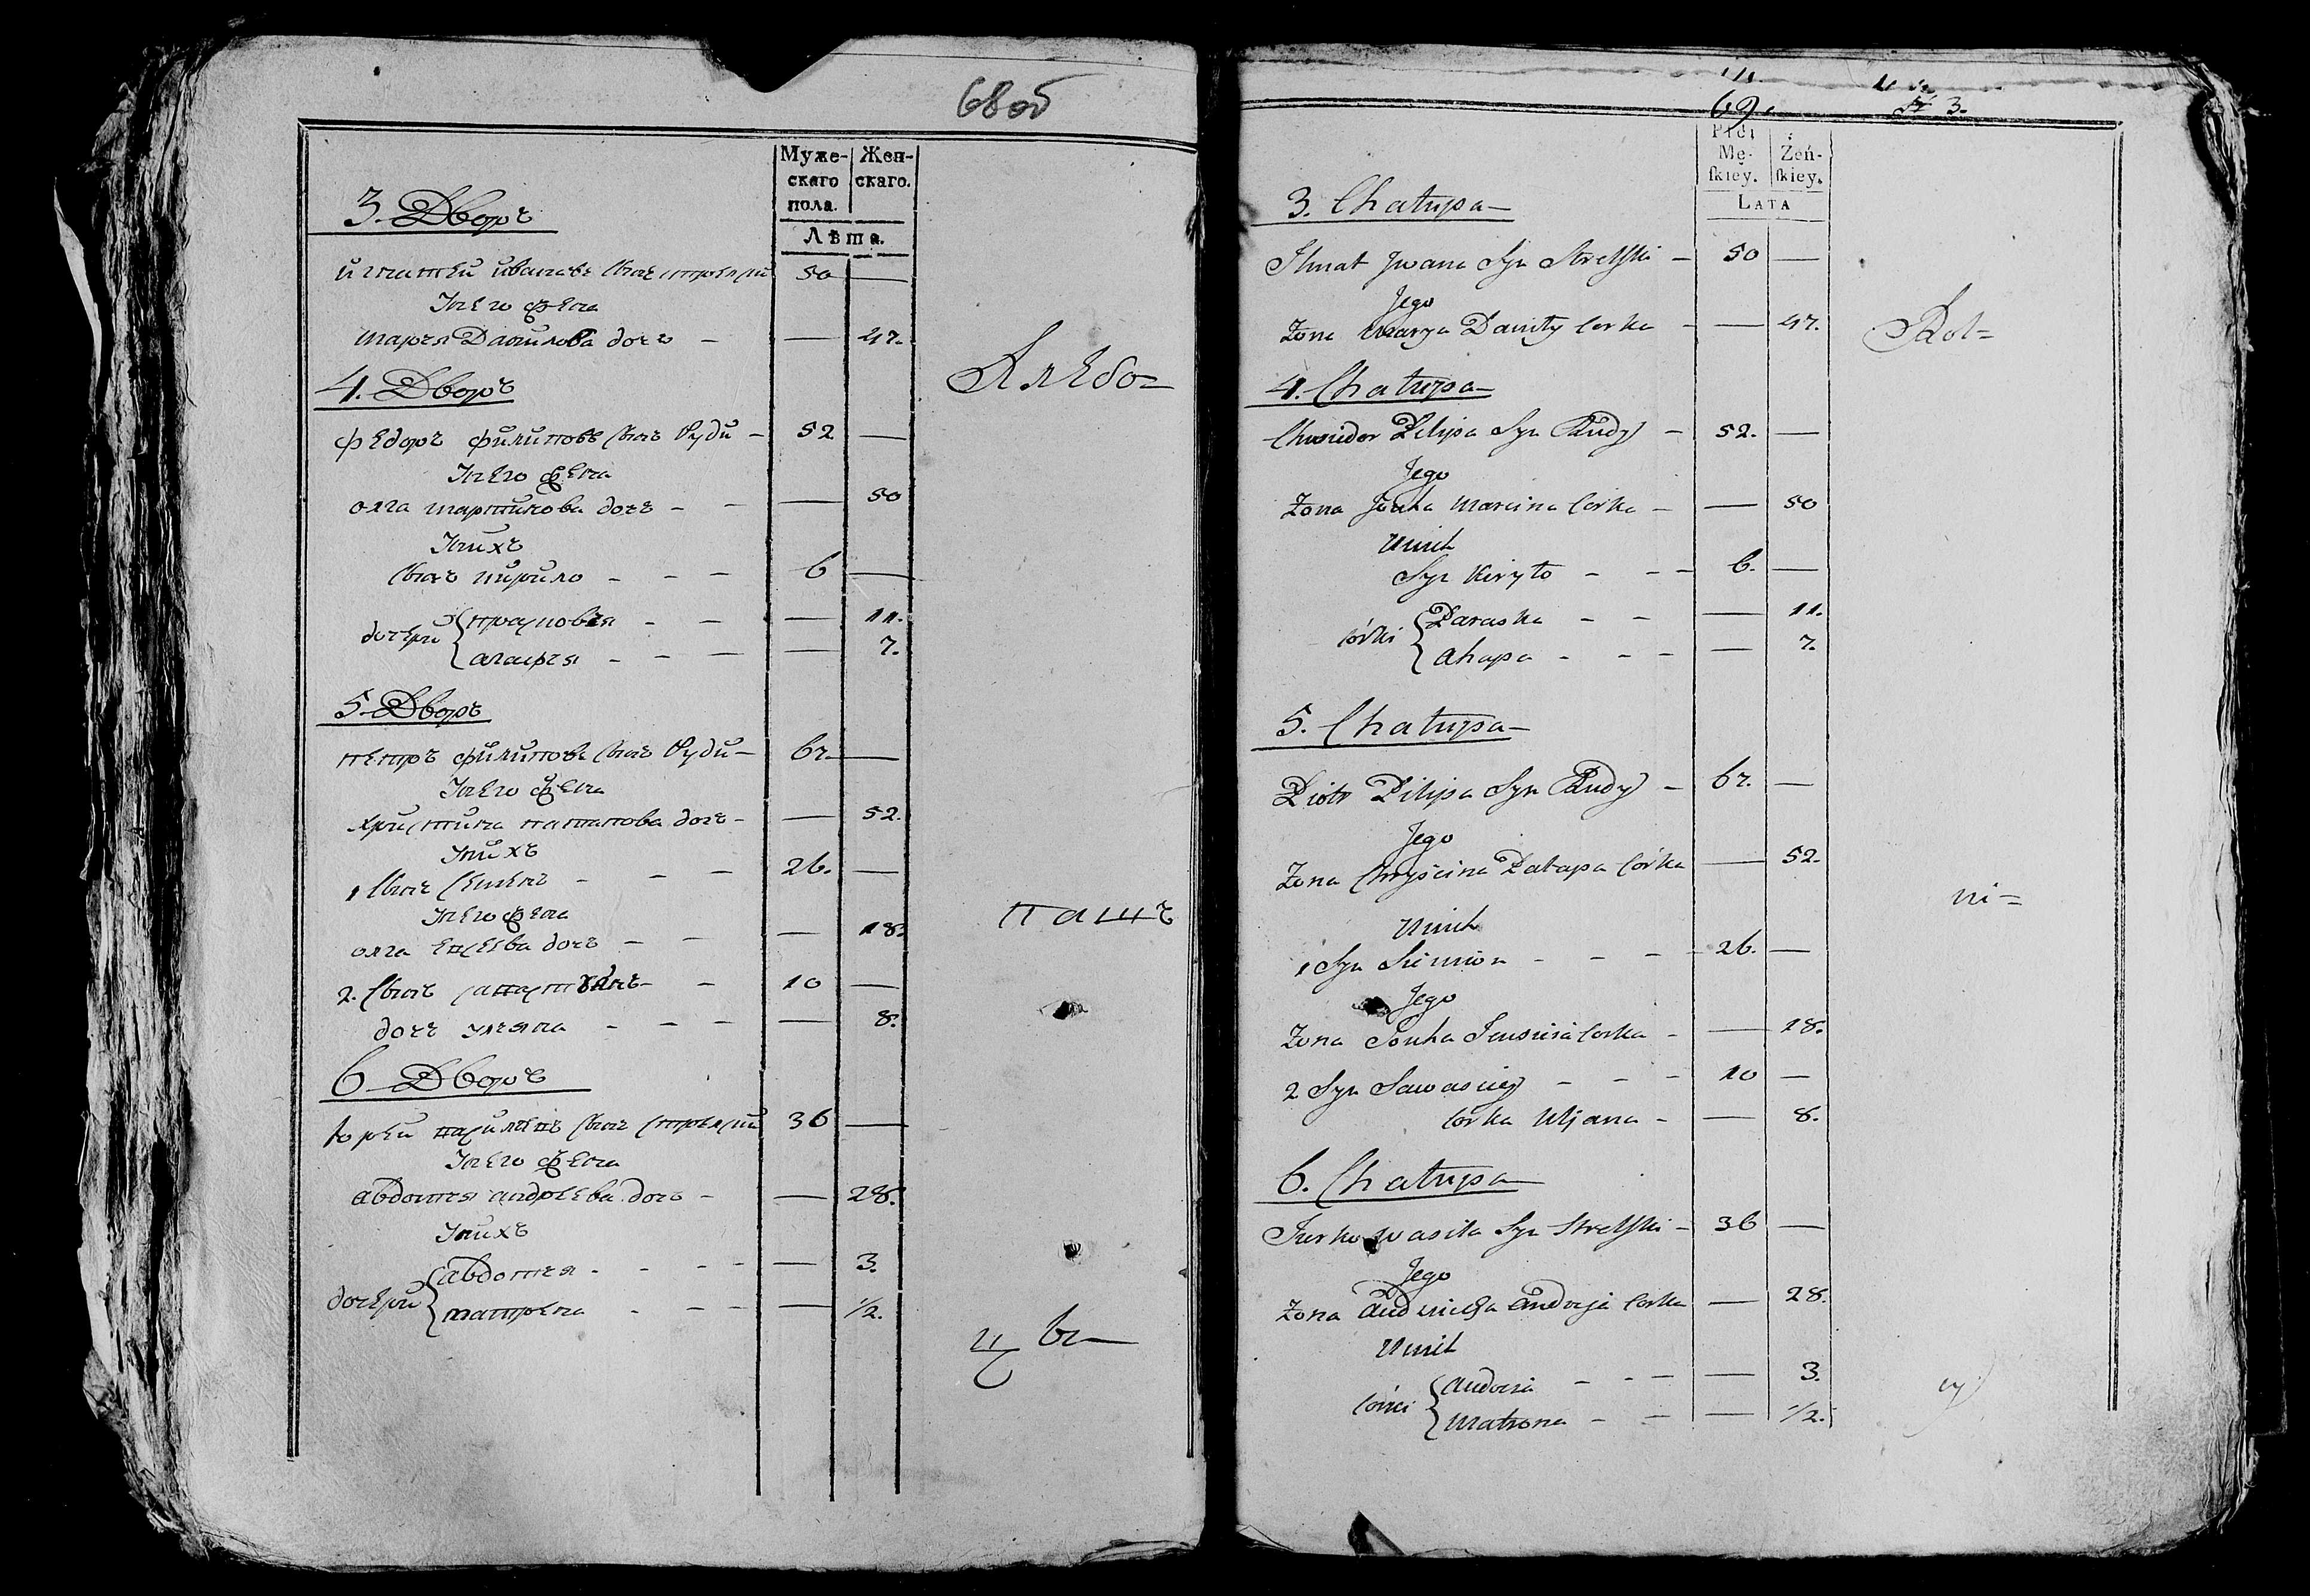 68 об
Муже-
скаго
пола.
Жен-
скаго.
Лѣта.
3. Дворъ
игнатей ивановъ сынъ стрелски 50 —
У него жена
марья Данилова дочь — — 47.
4. Дворъ
федоръ филиповъ сынъ Руди — 52 —
У него жена
олга мартинова дочь — — — 50
У них
сынъ кирило — — — 6 —
дочери { прасковья — — — 11.
агафья — — — — 7.
5 Дворъ
петръ филиповъ сынъ Руди — 62 —
У него жена
христина патапова дочь — — 52.
У нихъ
1 сынъ семенъ — — — 26. —
У него жена
олга дочь — — — 18.
2. сынъ — — 10 —
дочь ульяна — — — — 8.
6 Дворъ
юрки василевъ сынъ стрелски 36 —
У него жена
авдотья андреева дочь — — 28.
У нихъ
дочери { авдотья — — — — 3.
матрена — — — — 1/2.
Хлебо=
пашъ
цы
69.
№ 3.
Płci
Mę-
ſkiey.
Żeń-
ſkiey.
LATA
3. Chałupa
Ihnat Jwana Syn Strelſki — 50 —
Jego
Żona Marya Daniły Corka — — 47.
4. Chałupa
Chwiedor Pilipa Syn Rudy — 52. —
Jego
Żona Marcina Corka — — 50
U nich
Syn Kiryło — — — 6. —
Córki { Paraska — — — 11.
Ahapa — — — — 7.
5. Chałupa
Piotr Pilipa Syn Rudy — 62. —
Jego
Żona Chryścina Patapa Córka — 52.
U nich
1 Syn Siemion — — — 26. —
Jego
Żona Corka — — 18.
2 Syn Sawaściey — — — 10 —
Corka Uljana — — 8.
6. Chałupa
Jurko Wasila Syn Strelſki — 36 —
Jego
Żona Andrzeja Corka — 28.
U nich
Córki { Audocia — — — — 3.
Matrona — — — 1/2.
Rol=
ni=
cy